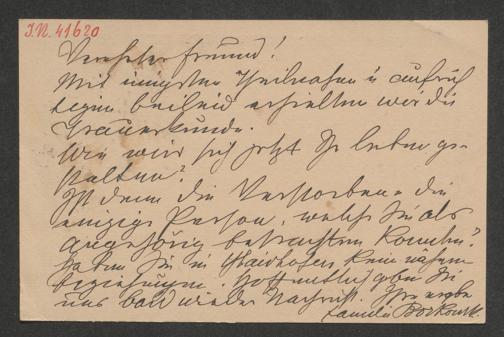 J.N. 41620
Verehrter Freund!
Mit innigster Theilnahme u aufrich
tigem Beileid erhielten wir die
Trauerkunde.
Wie wird sich jetzt Ihr Leben ge-
stalten?
Ist denn die Verstorbene die
einzige Person, welche Sie als
angehörig betrachten konnten?
Haben Sie in Waidhofen keine nähern
Beziehungen. Hoffentlich geben Sie
uns bald wieder Nachricht. Ihre ergebene
Familie Borkowsk.